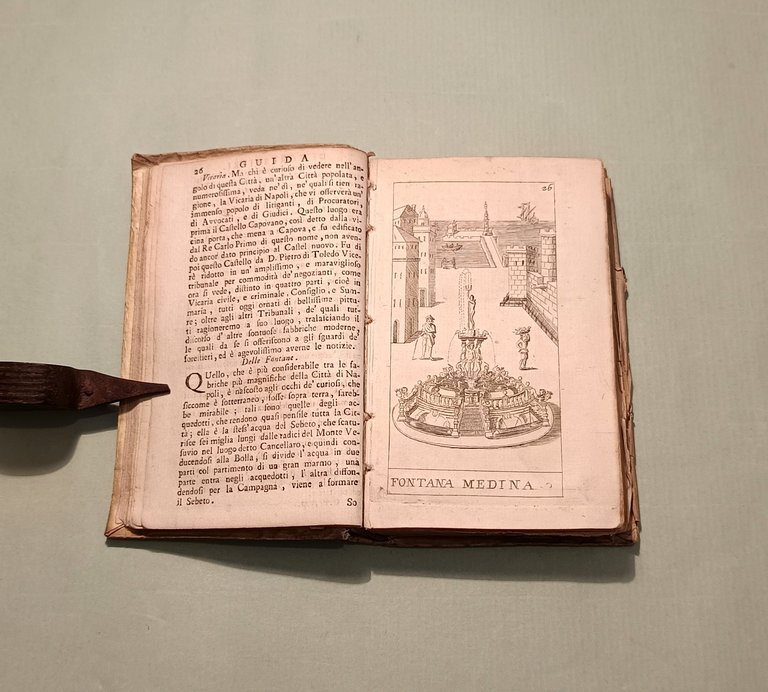 26 GUIDA
Vicaria. Ma chi è curioso di vedere nell'an-
golo di questa Città, un'altra Città popolata, e
numerosissima, veda ne' dì, ne' quali si tien ra-
gione, la Vicaria di Napoli, che vi osserverà un'
immenso popolo di litiganti, di Procuratori,
di Avvocati, e di Giudici. Questo luogo era
prima il Castello Capovano, così detto dalla vi-
cina porta, che mena a Capova, e fu edificato
dal Re Carlo Primo di questo nome, non aven-
do ancor dato principio al Castel nuovo. Fu di
poi questo Castello da D. Pietro di Toledo Vice-
rè ridotto in un'amplissimo, e maraviglioso
tribunale per commodità de' negozianti, come
ora si vede, distinto in quattro parti, cioè in
Vicaria civile, e criminale, Consiglio, e Sum-
maria, tutti oggi ornati di bellissime pittu-
re; oltre agli altri Tribunali, de' quali tut-
ti ragioneremo a suo luogo, tralasciando il
discorso d'altre sontuose fabbriche moderne,
le quali da se si offeriscono a gli sguardi de'
forestieri, ed è agevolissimo averne le notizie.
Delle Fontane.
Quello, che è più considerabile tra le fa-
briche più magnifiche della Città di Na-
poli, è nascosto agli occhi de' curiosi, che
siccome è sotterraneo, fosse sopra terra, sareb-
be mirabile; tali sono quelle degli ac-
quedotti, che rendono quasi pensile tutta la Cit-
tà; ella è la stess'acqua del Sebeto, che scatu-
risce sei miglia lungi dalle radici del Monte Ve-
suvio nel luogo detto Cancellaro, e quindi con-
ducendosi alla Bolla, si divide l'acqua in due
parti col partimento di un gran marmo, una
parte entra negli acquedotti, l'altra diffon-
dendosi per la Campagna, viene a formare
il Sebeto.
So
26
FONTANA MEDINA